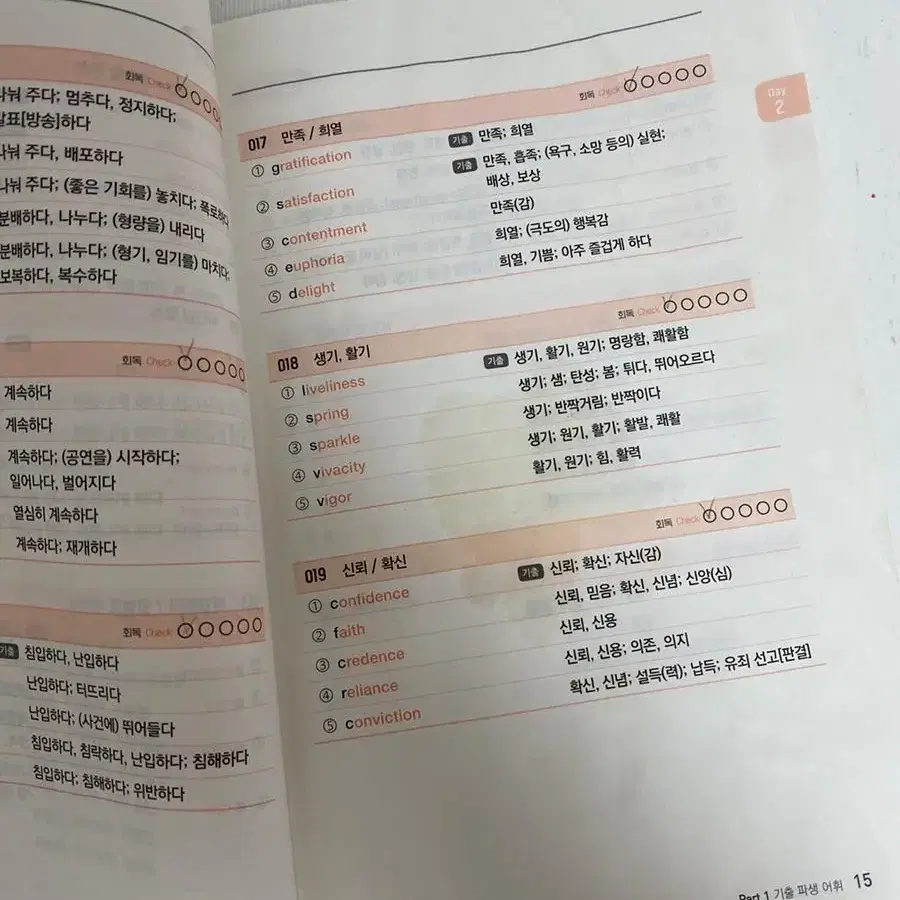 회독 Check
나눠 주다; 멈추다, 정지하다;
발표[방송]하다
나눠 주다, 배포하다
나눠 주다; (좋은 기회를) 놓치다; 폭로하다
분배하다, 나누다; (형량을) 내리다
분배하다, 나누다; (형기, 임기를) 마치다;
보복하다, 복수하다
회독 Check
계속하다
계속하다
계속하다; (공연을) 시작하다;
일어나다, 벌어지다
열심히 계속하다
계속하다; 재개하다
회독 Check
기출 침입하다, 난입하다
난입하다; 터뜨리다
난입하다; (사건에) 뛰어들다
침입하다, 침략하다, 난입하다; 침해하다
침입하다; 침해하다; 위반하다
Day
2
017 만족 / 희열 회독 Check
① gratification 기출 만족; 희열
② satisfaction 기출 만족, 흡족; (욕구, 소망 등의) 실현;
배상, 보상
③ contentment 만족(감)
④ euphoria 희열; (극도의) 행복감
⑤ delight 희열, 기쁨; 아주 즐겁게 하다
018 생기, 활기 회독 Check
① liveliness 기출 생기, 활기, 원기; 명랑함, 쾌활함
② spring 생기; 샘; 탄성; 봄; 튀다, 뛰어오르다
③ sparkle 생기; 반짝거림; 반짝이다
④ vivacity 생기; 원기, 활기; 활발, 쾌활
⑤ vigor 활기, 원기; 힘, 활력
019 신뢰 / 확신 회독 Check
① confidence 기출 신뢰; 확신; 자신(감)
② faith 신뢰, 믿음; 확신, 신념; 신앙(심)
③ credence 신뢰, 신용
④ reliance 신뢰, 신용; 의존, 의지
⑤ conviction 확신, 신념; 설득(력); 납득; 유죄 선고[판결]
Part 1 기출 파생 어휘 15